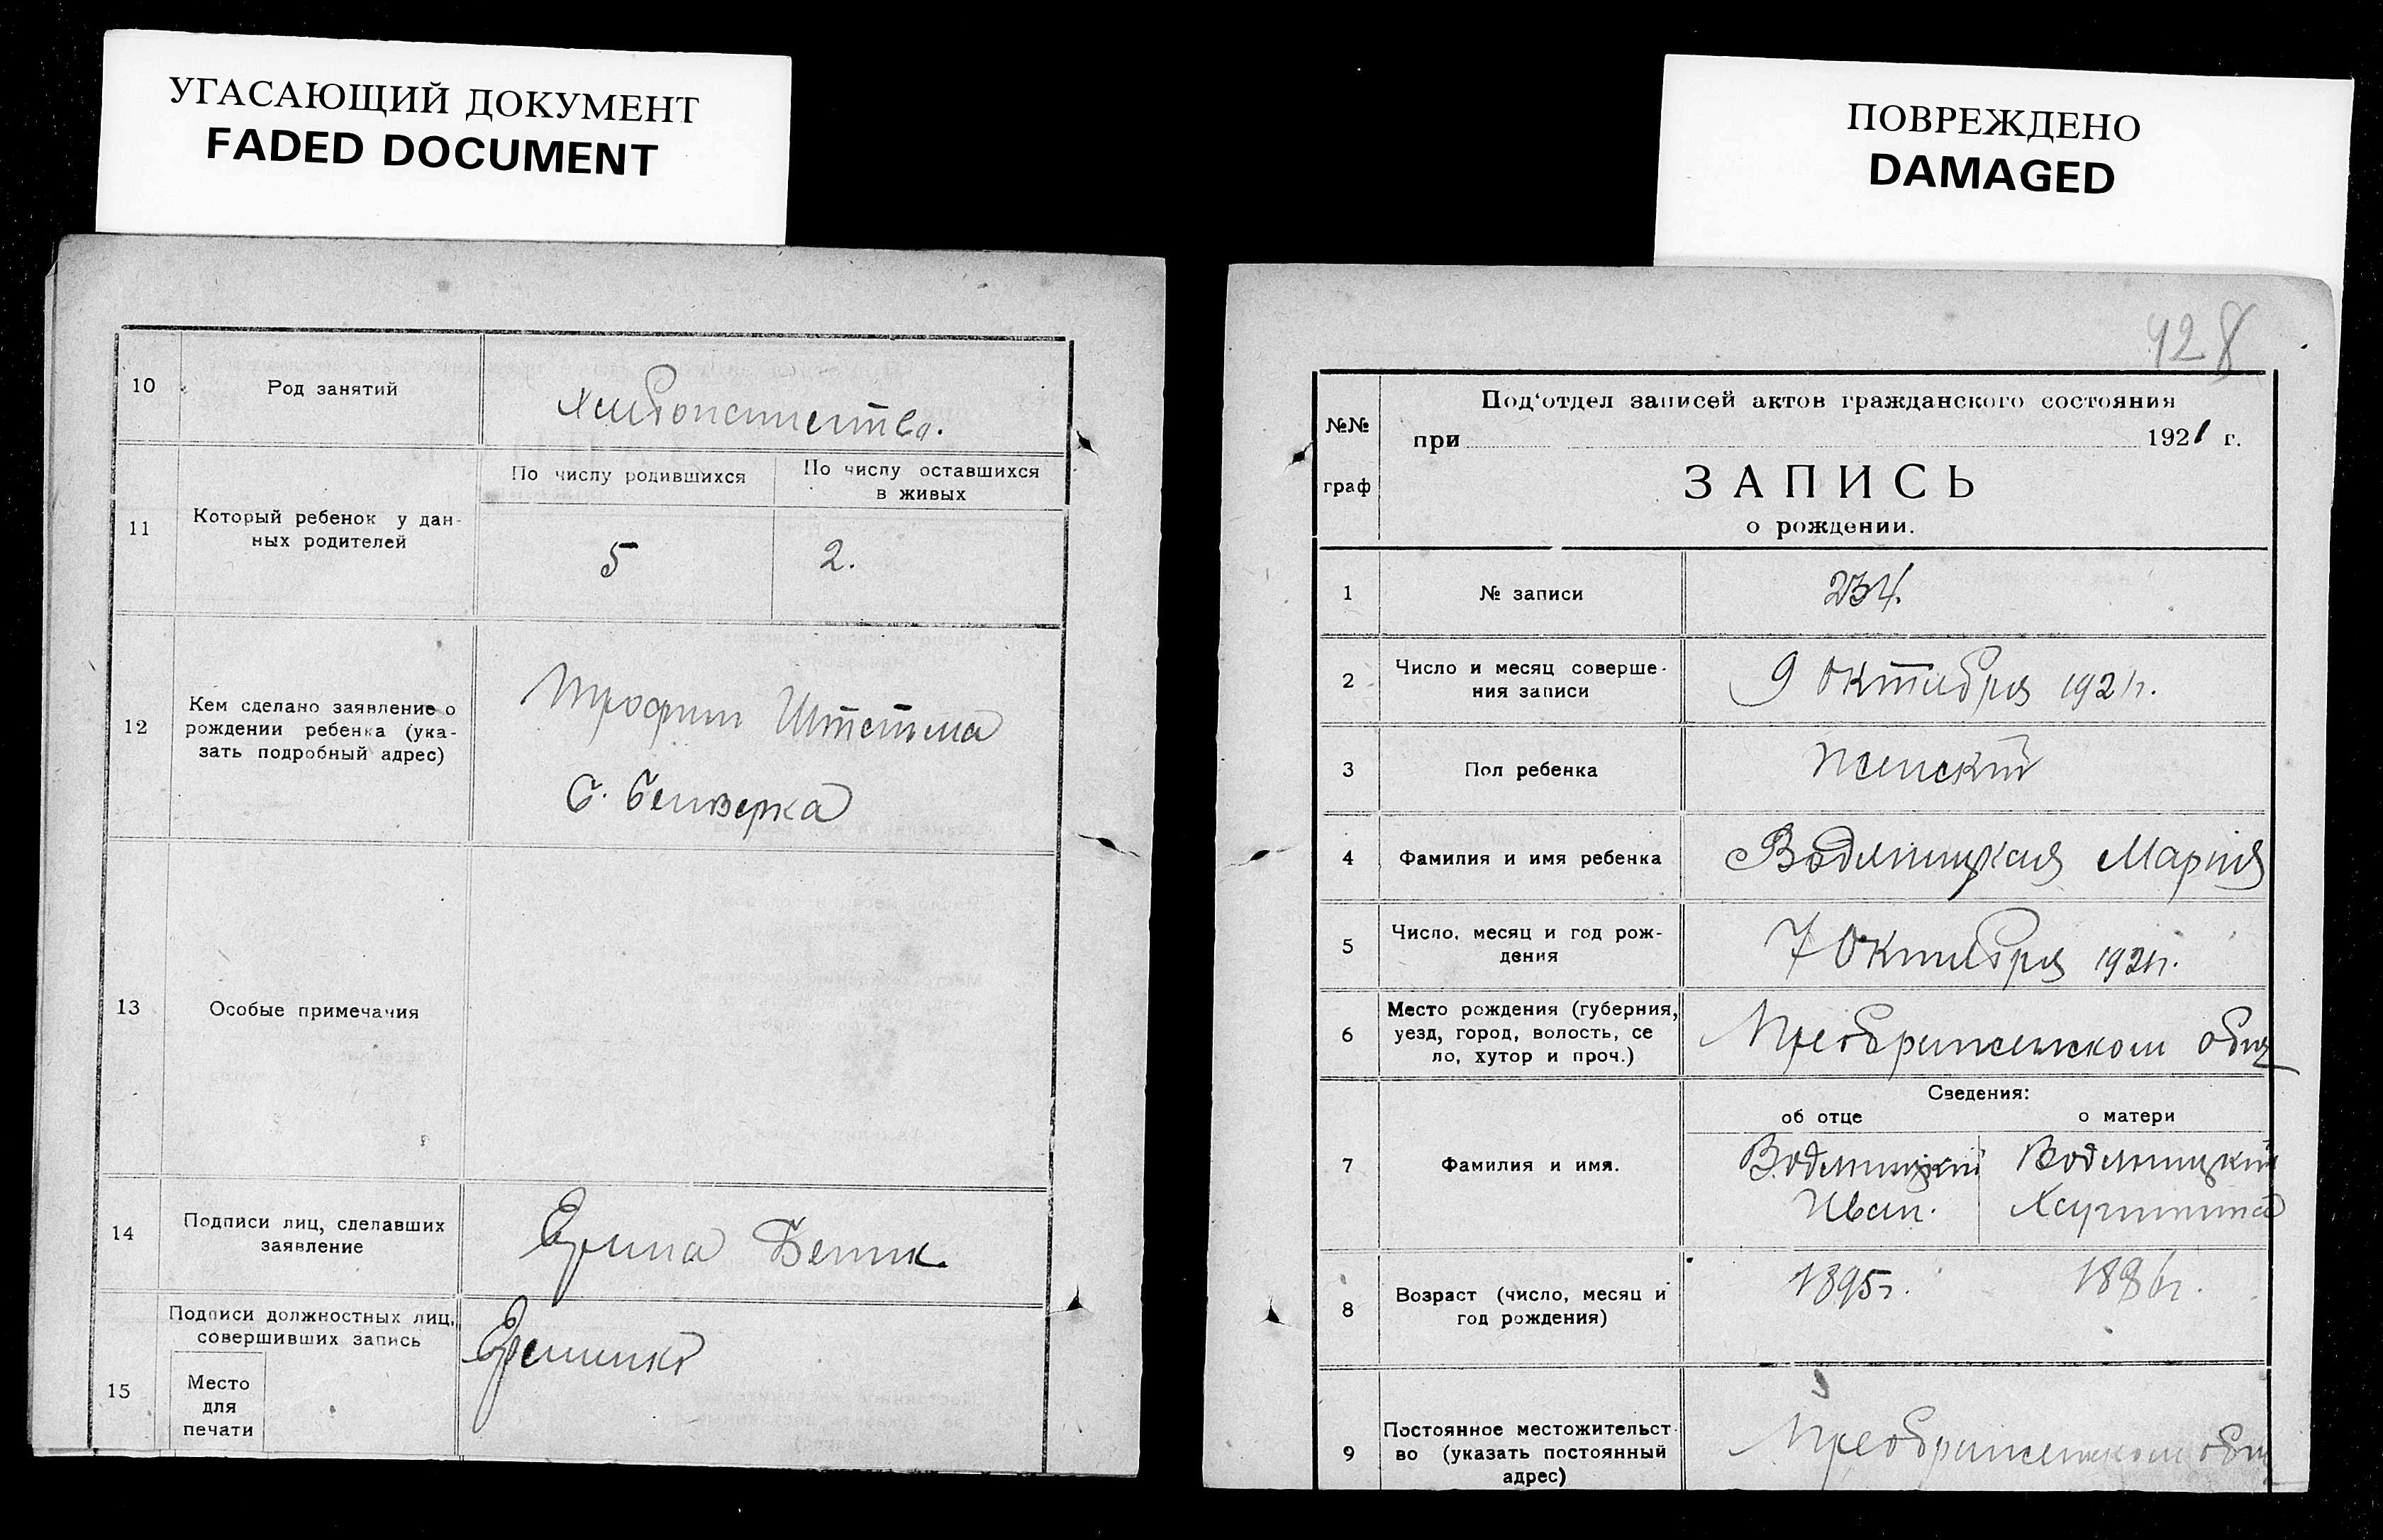 УГАСАЮЩИЙ ДОКУМЕНТ
FADED DOCUMENT
10
Род занятий
Хлебопашество.
11
Который ребенок у дан-
ных родителей
По числу родившихся
По числу оставшихся
в живых
5
2.
12
Кем сделано заявление о
рождении ребенка (ука-
зать подробный адрес)
Трофим
С.
13
Особые примечания
14
Подписи лиц, сделавших
заявление
15
Подписи должностных лиц,
совершивших запись
Место
для
печати
ПОВРЕЖДЕНО
DAMAGED
428
№№
граф
Под'отдел записей актов гражданского состояния
при 1921 г.
ЗАПИСЬ
о рождении.
1
№ записи
234.
2
Число и месяц соверше-
ния записи
9 Октября 1921г.
3
Пол ребенка
женский
4
Фамилия и имя ребенка
Водяницкая Мария
5
Число, месяц и год рож-
дения
7 Октября 1921г.
6
Место рождения (губерния,
уезд, город, волость, се
ло, хутор и проч.)
Преображенском общ
Сведения:
об отце
о матери
7
Фамилия и имя.
Водяницкий
Иван.
Водяницкий
8
Возраст (число, месяц и
год рождения)
1895г.
1896г.
9
Постоянное местожительст-
во (указать постоянный
адрес)
Преображенском общ